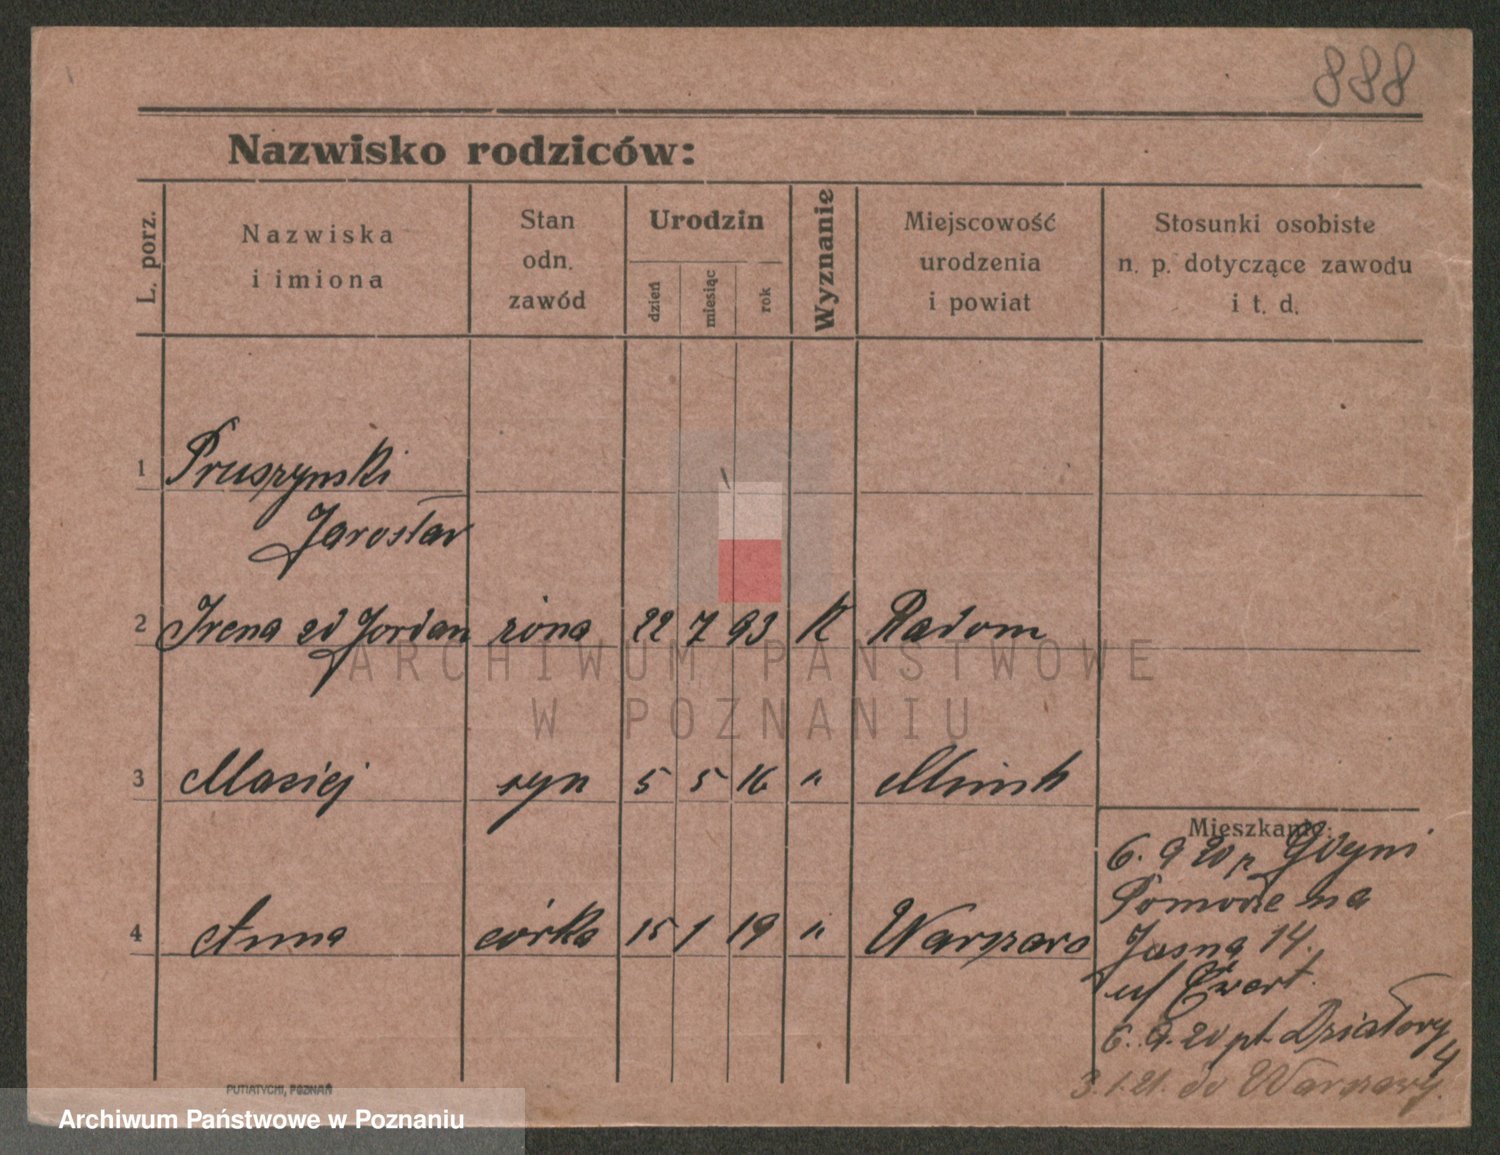 888
Nazwisko rodziców:
L. porz.
Nazwiska
i imiona
Stan
odn.
zawód
Urodzin
dzień
miesiąc
rok
Wyznanie
Miejscowość
urodzenia
i powiat
Stosunki osobiste
n. p. dotyczące zawodu
i t. d.
1 Pruszynski
Jarosław
2 Irena zd Jordan żona 22 7 93 K Radom
ARCHIWUM PAŃSTWOWE
W POZNANIU
3 Maciej syn 5 5 16 " Minsk
Mieszkanie:
6. 9 20 p Gdyni
4 Anna córka 15 1 19 " Warszawa
Pomorze na
Jasna 14.
u/ Ewert.
6. 9. 20 pt. Działowy
4
3.1.21. do Warszawy.
PUTIATYCKI, POZNAŃ
Archiwum Państwowe w Poznaniu